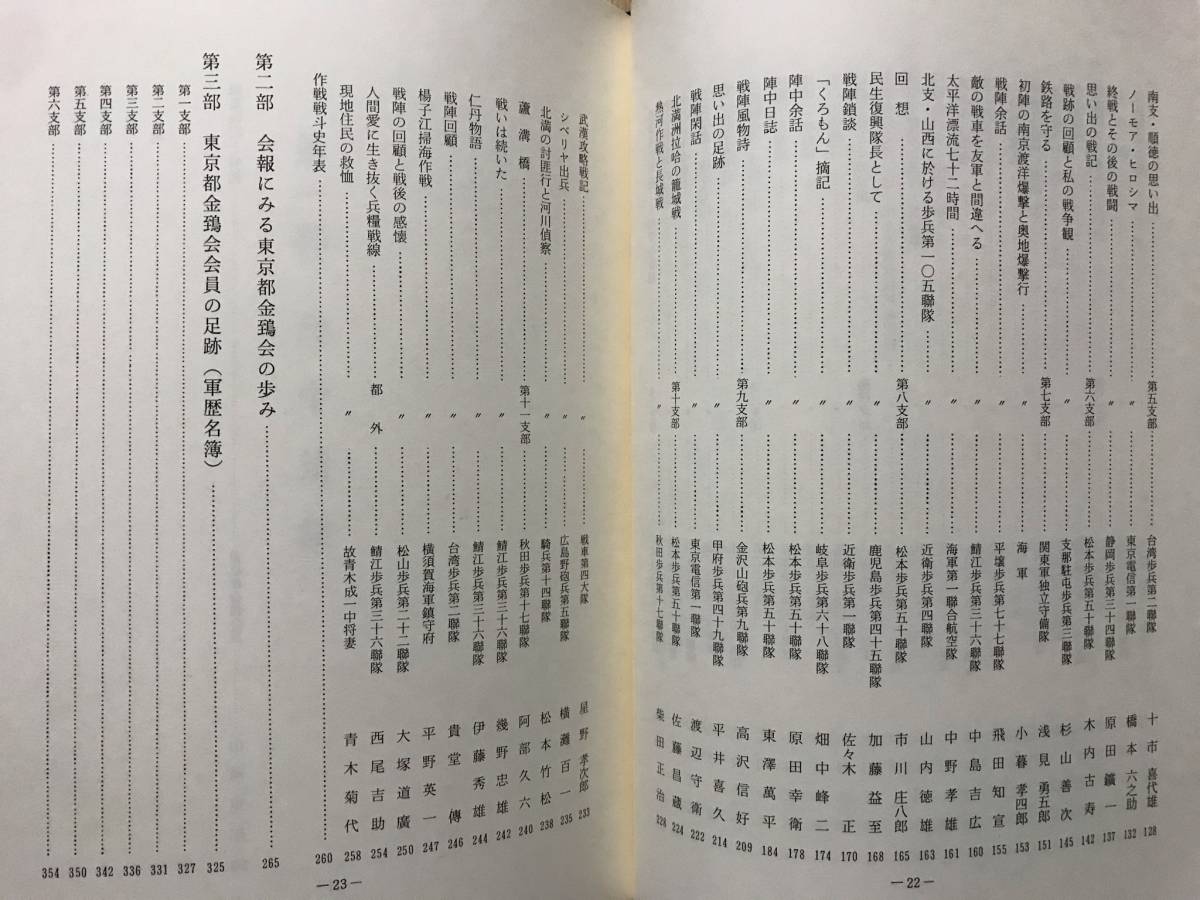 南支・順徳の思い出……第五支部……台湾歩兵第二聯隊 十市喜代雄 128
ノーモア・ヒロシマ……〃……東京電信第一聯隊 橋本六之助 132
終戦とその後の戦闘……〃……静岡歩兵第三十四聯隊 原田鑛一 137
思い出の戦記……第六支部……松本歩兵第五十聯隊 木内古寿 142
戦跡の回顧と私の戦争観……〃……支那駐屯歩兵第三聯隊 杉山善次 145
鉄路を守る……第七支部……関東軍独立守備隊 浅見勇五郎 151
初陣の南京渡洋爆撃と奥地爆撃行……〃……海軍 小暮孝四郎 153
戦陣余話……〃……平壌歩兵第七十七聯隊 飛田知宣 155
敵の戦車を友軍と間違へる……〃……鯖江歩兵第三十六聯隊 中島吉広 160
太平洋漂流七十二時間……〃……海軍第一聯合航空隊 中野孝雄 161
北支・山西に於ける歩兵第一〇五聯隊……〃……近衛歩兵第四聯隊 山内徳雄 163
回想……第八支部……松本歩兵第五十聯隊 市川庄八郎 165
民生復興隊長として……〃……鹿児島歩兵第四十五聯隊 加藤益至 168
戦陣鎖談……〃……近衛歩兵第一聯隊 佐々木正 170
「くろもん」摘記……〃……岐阜歩兵第六十八聯隊 畑中峰二 174
陣中余話……〃……松本歩兵第五十聯隊 原田幸衛 178
陣中日誌……〃……松本歩兵第五十聯隊 東澤萬平 184
戦陣風物詩……第九支部……金沢山砲兵第九聯隊 高沢信好 209
思い出の足跡……〃……甲府歩兵第四十九聯隊 平井喜久 214
戦陣閑話……〃……東京電信第一聯隊 渡辺守衛 222
北満洲拉哈の籠城戦……第十支部……松本歩兵第五十聯隊 佐藤昌蔵 224
熱河作戦と長城戦……〃……秋田歩兵第十七聯隊 柴田正治 228
—22—
武漢攻略戦記……〃……戦車第四大隊 星野孝次郎 233
シベリヤ出兵……〃……広島野砲兵第五聯隊 横灘百一 235
北満の討匪行と河川偵察……〃……騎兵第十四聯隊 松本竹松 238
蘆溝橋……第十一支部……秋田歩兵第十七聯隊 阿部久六 240
戦いは続いた……〃……鯖江歩兵第三十六聯隊 幾野忠雄 242
仁丹物語……〃……鯖江歩兵第三十六聯隊 伊藤秀雄 244
戦陣回顧……〃……台湾歩兵第二聯隊 貴堂傳 246
楊子江掃海作戦……〃……横須賀海軍鎮守府 平野英一 247
戦陣の回顧と戦後の感懐……〃……松山歩兵第二十二聯隊 大塚道廣 250
人間愛に生き抜く兵糧戦線……都外……鯖江歩兵第三十六聯隊 西尾吉助 254
現地住民の救恤……〃……故青木成一中将妻 青木菊代 258
作戦戦斗史年表…… 260
第二部 会報にみる東京都金鵄会の歩み…… 265
第三部 東京都金鵄会会員の足跡（軍歴名簿）…… 325
第一支部…… 327
第二支部…… 331
第三支部…… 336
第四支部…… 342
第五支部…… 350
第六支部…… 354
—23—